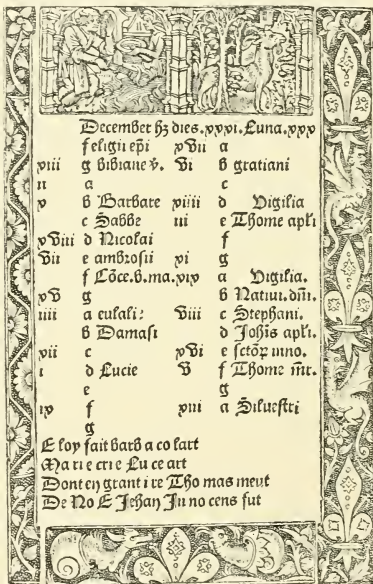 December hȝ dies.xxxi.Luna.xxx
f eligii epi xvii a
viii g bibiane v. vi b gratiani
ii a c
x b Barbare xiiii d Vigilia
c Sabbe iii e Thome apli
xviii d Nicolai f
vii e ambrosii xi g
f Cōce.b.ma.xix a Vigilia.
xv g b Natiui.dñi.
iiii a eulali: viii c Stephani.
b Damasi d Johis apli.
xii c xvi e sctoꝝ inno.
i d Lucie v f Thome mr̄t.
e g
ix f xiii a Siluestri
g
E loy fait barb a co lart
Ma ri e crie Lu ce art
Dont en grant i re Tho mas meut
De No E Jehan In no cens fut